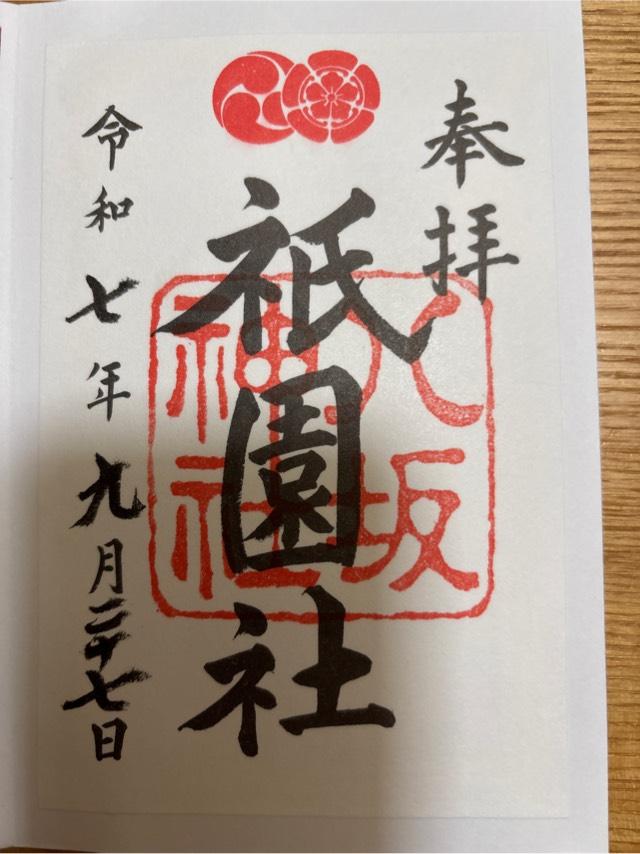 奉拝
祇園社
八坂
神社
令和七年九月二十七日